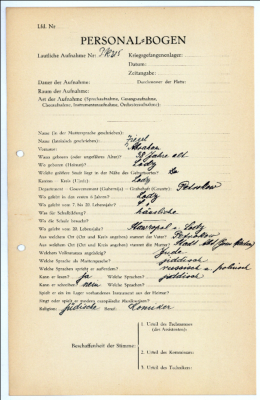 Lfd. Nr.
PERSONAL-BOGEN
Lautliche Aufnahme Nr.: Kriegsgefangenenlager:
Datum:
Zeitangabe:
Dauer der Aufnahme: Durchmesser der Platte:
Raum der Aufnahme:
Art der Aufnahme (Sprechaufnahme, Gesangsaufnahme,
Choraufnahme, Instrumentenaufnahme, Orchesteraufnahme):
Name (in der Muttersprache geschrieben):
Name (lateinisch geschrieben):
Vorname: Abraham
Wann geboren (oder ungefähres Alter)? 38 Jahre alt
Wo geboren (Heimat)? Lodz
Welche größere Stadt liegt in der Nähe des Geburtsortes?
Kanton — Kreis (Ujezd): Lodz
Departement — Gouvernement (Gubernija) — Grafschaft (County):
Wo gelebt in den ersten 6 Jahren? Lodz
Wo gelebt vom 7. bis 20. Lebensjahr?
Was für Schulbildung? häusliche
Wo die Schule besucht?
Wo gelebt vom 20. Lebensjahr?
Aus welchem Ort (Ort und Kreis angeben) stammt der Vater?
Aus welchem Ort (Ort und Kreis angeben) stammt die Mutter?
Welchem Volksstamm angehörig? Jude
Welche Sprache als Muttersprache? jiddisch
Welche Sprachen spricht er außerdem? russisch u polnisch
Kann er lesen? ja Welche Sprachen? jiddisch
Kann er schreiben? nein Welche Sprachen?
Spielt er ein im Lager vorhandenes Instrument aus der Heimat?
Singt oder spielt er modern europäische Musikweisen?
Religion: jüdische Beruf: Komiker
Beschaffenheit der Stimme:
1. Urteil des Fachmannes
(des Assistenten):
2. Urteil des Kommissars:
3. Urteil des Technikers: